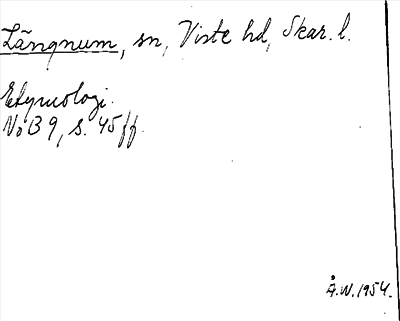 Längnum, sn, Viste hd, Skar. l.
Etymologi.
NoB 9, s. 45 ff.
Å.W. 1954.